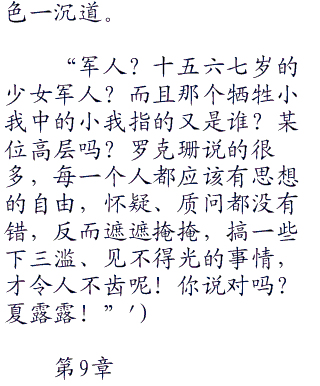 色一沉道。
“军人？十五六七岁的
少女军人？而且那个牺牲小
我中的小我指的又是谁？某
位高层吗？罗克珊说的很
多，每一个人都应该有思想
的自由，怀疑、质问都没有
错，反而遮遮掩掩，搞一些
下三滥、见不得光的事情，
才令人不齿呢！你说对吗？
夏露露！”′)
第9章